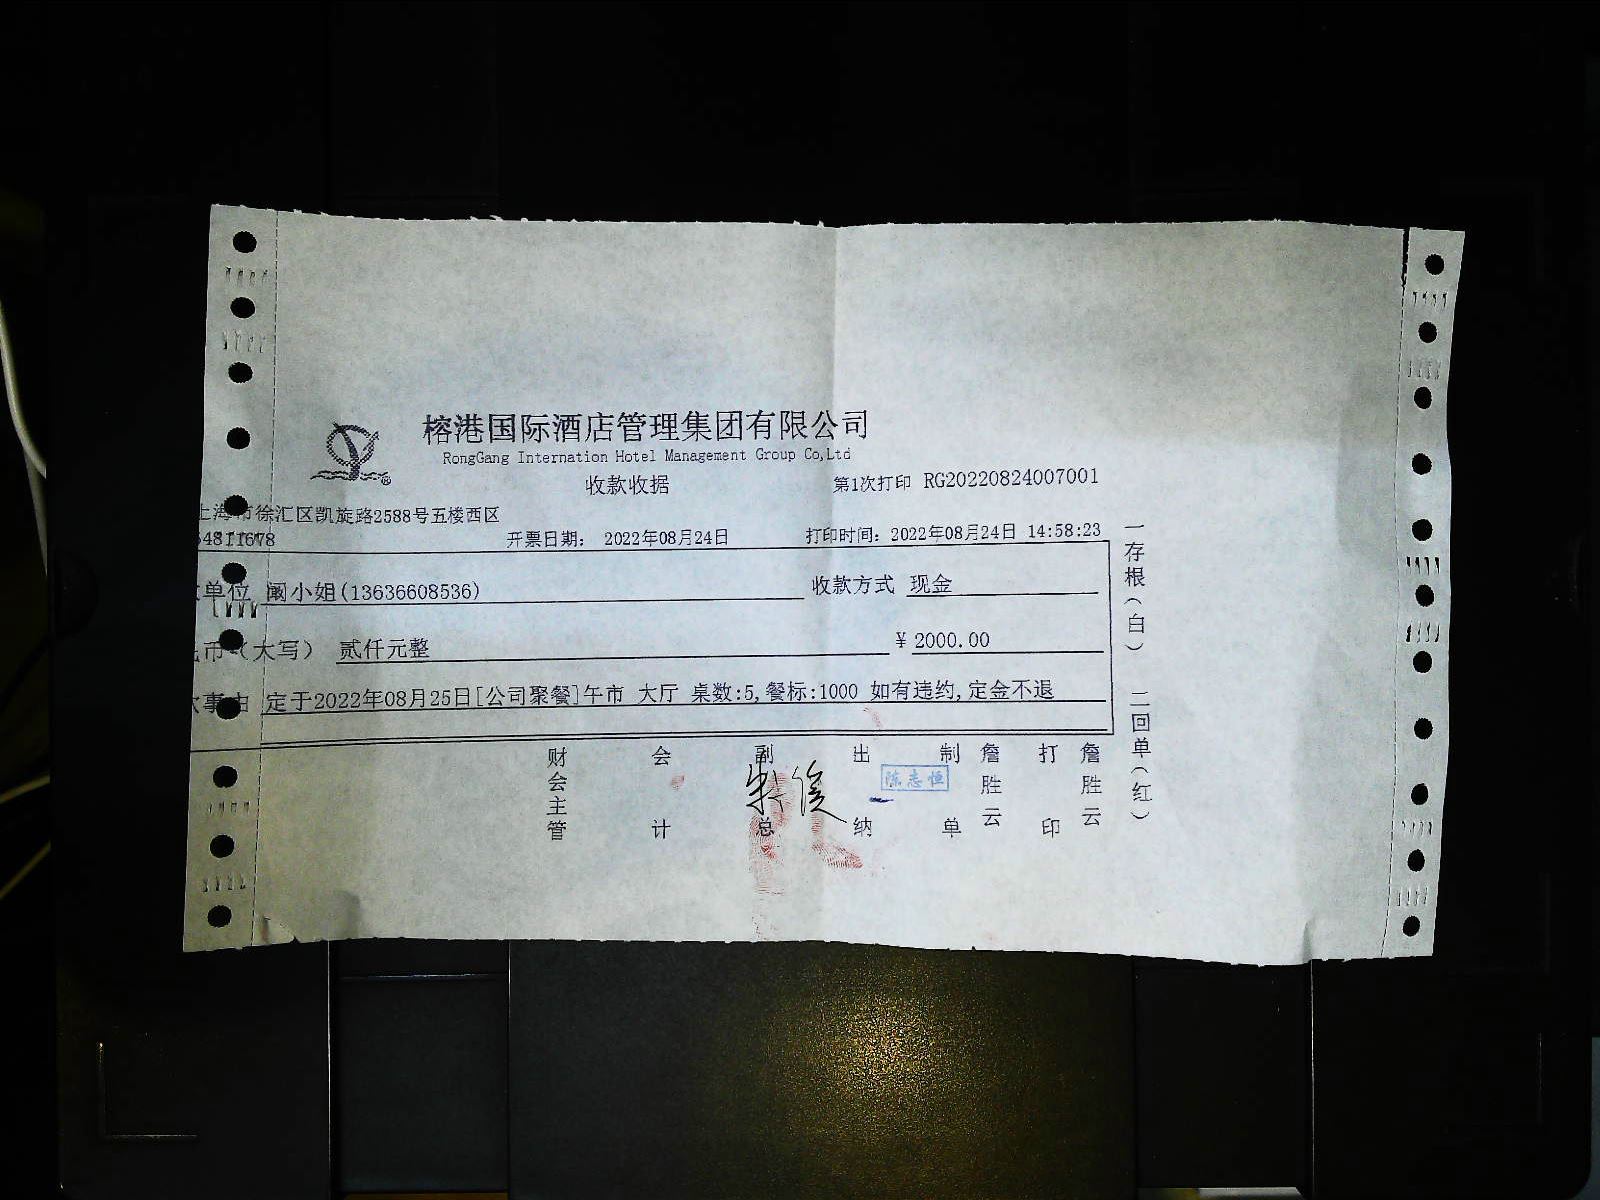 榕港国际酒店管理集团有限公司
RongGang Internation Hotel Management Group Co,Ltd
收款收据
第1次打印 RG20220824007001
上海市徐汇区凯旋路2588号五楼西区
54811678 开票日期: 2022年08月24日 打印时间: 2022年08月24日 14:58:23
单位 阚小姐(13636608536) 收款方式 现金
币(大写) 贰仟元整 ¥2000.00
事由 定于2022年08月25日[公司聚餐]午市 大厅 桌数:5,餐标:1000 如有违约,定金不退
一存根(白) 二回单(红)
财会主管 会计 副总 出纳 制单 詹胜云 打印 詹胜云
陈志恒